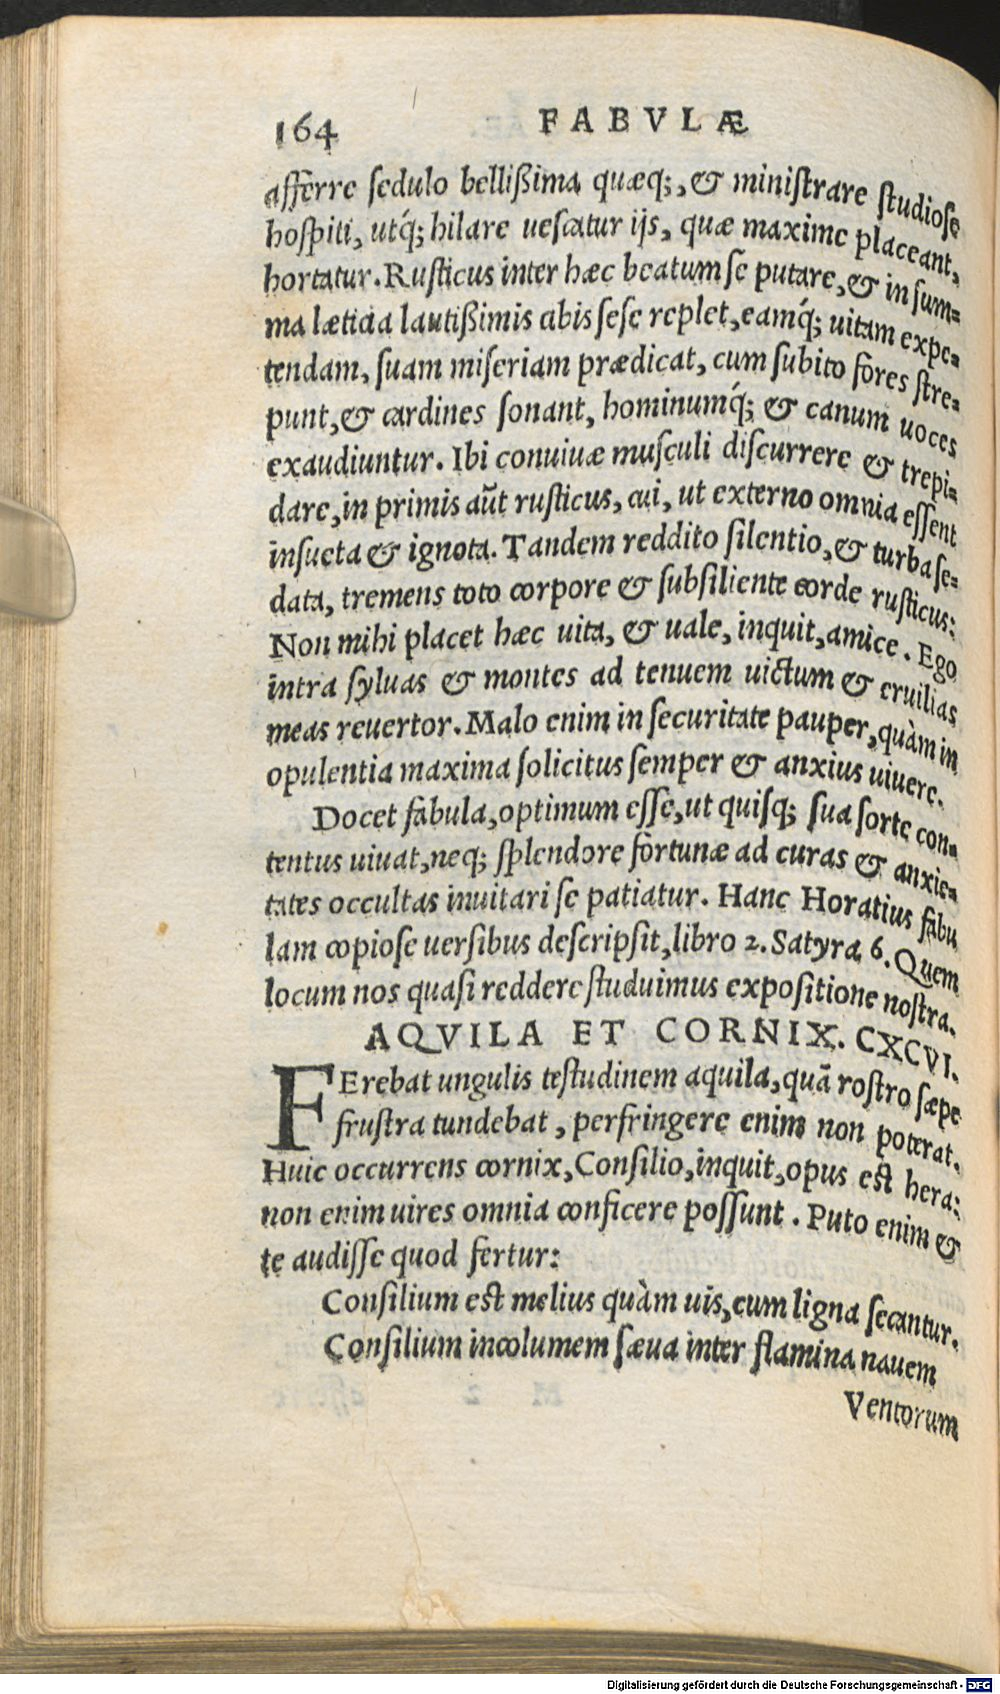 164 FABVLÆ
afferre sedulo bellißima quæq;, & ministrare studiose
hospiti, utq́; hilare uescatur ijs, quæ maxime placeant,
hortatur. Rusticus inter hæc beatum se putare, & in sum=
ma læticia lautißimis cibis sese replet, eamq́; uitam expe=
tendam, suam miseriam prædicat, cum subito fores stre=
punt, & cardines sonant, hominumq́; & canum uoces
exaudiuntur. Ibi conuiuæ musculi discurrere & trepi=
dare, in primis aũt rusticus, cui, ut externo omnia essent
insueta & ignota. Tandem reddito silentio, & turba se=
data, tremens toto corpore & subsiliente corde rusticus:
Non mihi placet hæc uita, & uale, inquit, amice. Ego
intra syluas & montes ad tenuem uictum & eruilias
meas reuertor. Malo enim in securitate pauper, quàm in
opulentia maxima solicitus semper & anxius uiuere.
Docet fabula, optimum esse, ut quisq; sua sorte con=
tentus uiuat, neq; splendore fortunæ ad curas & anxie=
tates occultas inuitari se patiatur. Hanc Horatius fabu
lam copiose uersibus descripsit, libro 2. Satyra 6. Quem
locum nos quasi reddere studuimus expositione nostra.
AQVILA ET CORNIX. CXCVI.
FErebat ungulis testudinem aquila, quã rostro sæpe
frustra tundebat, perfringere enim non poterat.
Huic occurrens cornix, Consilio, inquit, opus est hera:
non enim uires omnia conficere possunt. Puto enim &
te audisse quod fertur:
Consilium est melius quàm uis, cum ligna secantur.
Consilium incolumem sæua inter flamina nauem
Ventorum
Digitalisierung gefördert durch die Deutsche Forschungsgemeinschaft - DFG